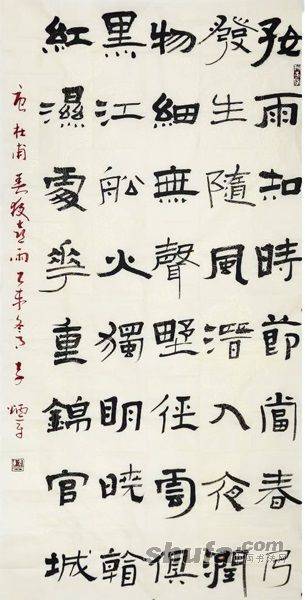 好雨知時節當春乃
發生隨風潛入夜潤
物細無聲野徑雲俱
黑江船火獨明曉看
紅濕處花重錦官城
唐杜甫春夜喜雨乙未冬月
shufa.com